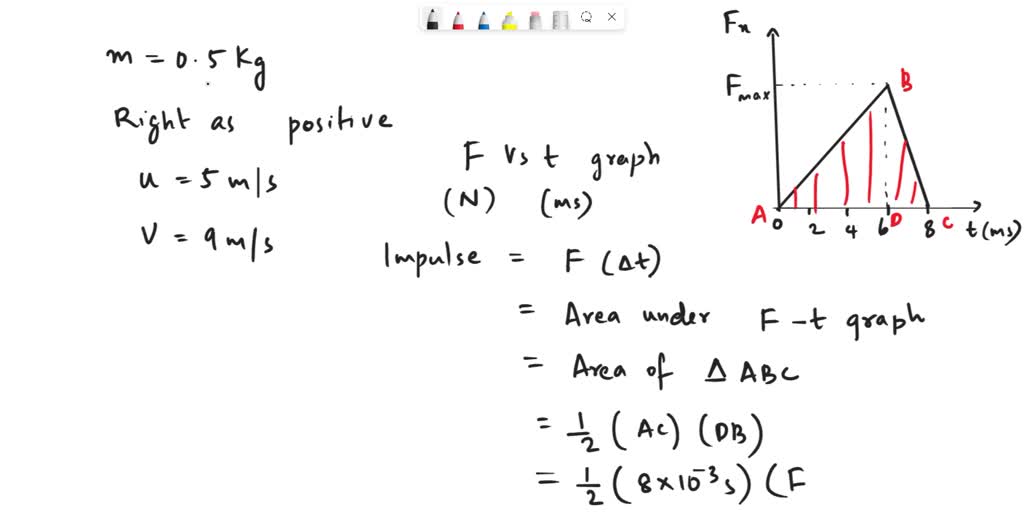 m = 0.5 Kg
Right as positive
u = 5 m/s
V = 9 m/s
F Vs t graph
(N) (ms)
Impulse = F (Δt)
= Area under F-t graph
= Area of Δ ABC
= 1/2 (AC) (DB)
= 1/2 (8×10⁻³s) (F
Fx
Fmax
B
A
0 2 4 6 D 8 C t(ms)